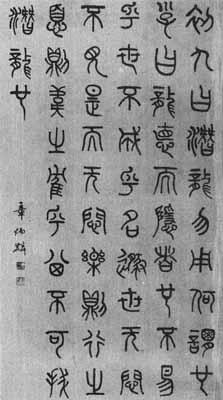 初九曰潛龍勿用何謂也
子曰龍德而隱者也不易
乎世不成乎名遯世无悶
不見是而无悶樂則行之
憂則違之確乎其不可拔
潛龍也
章炳麟